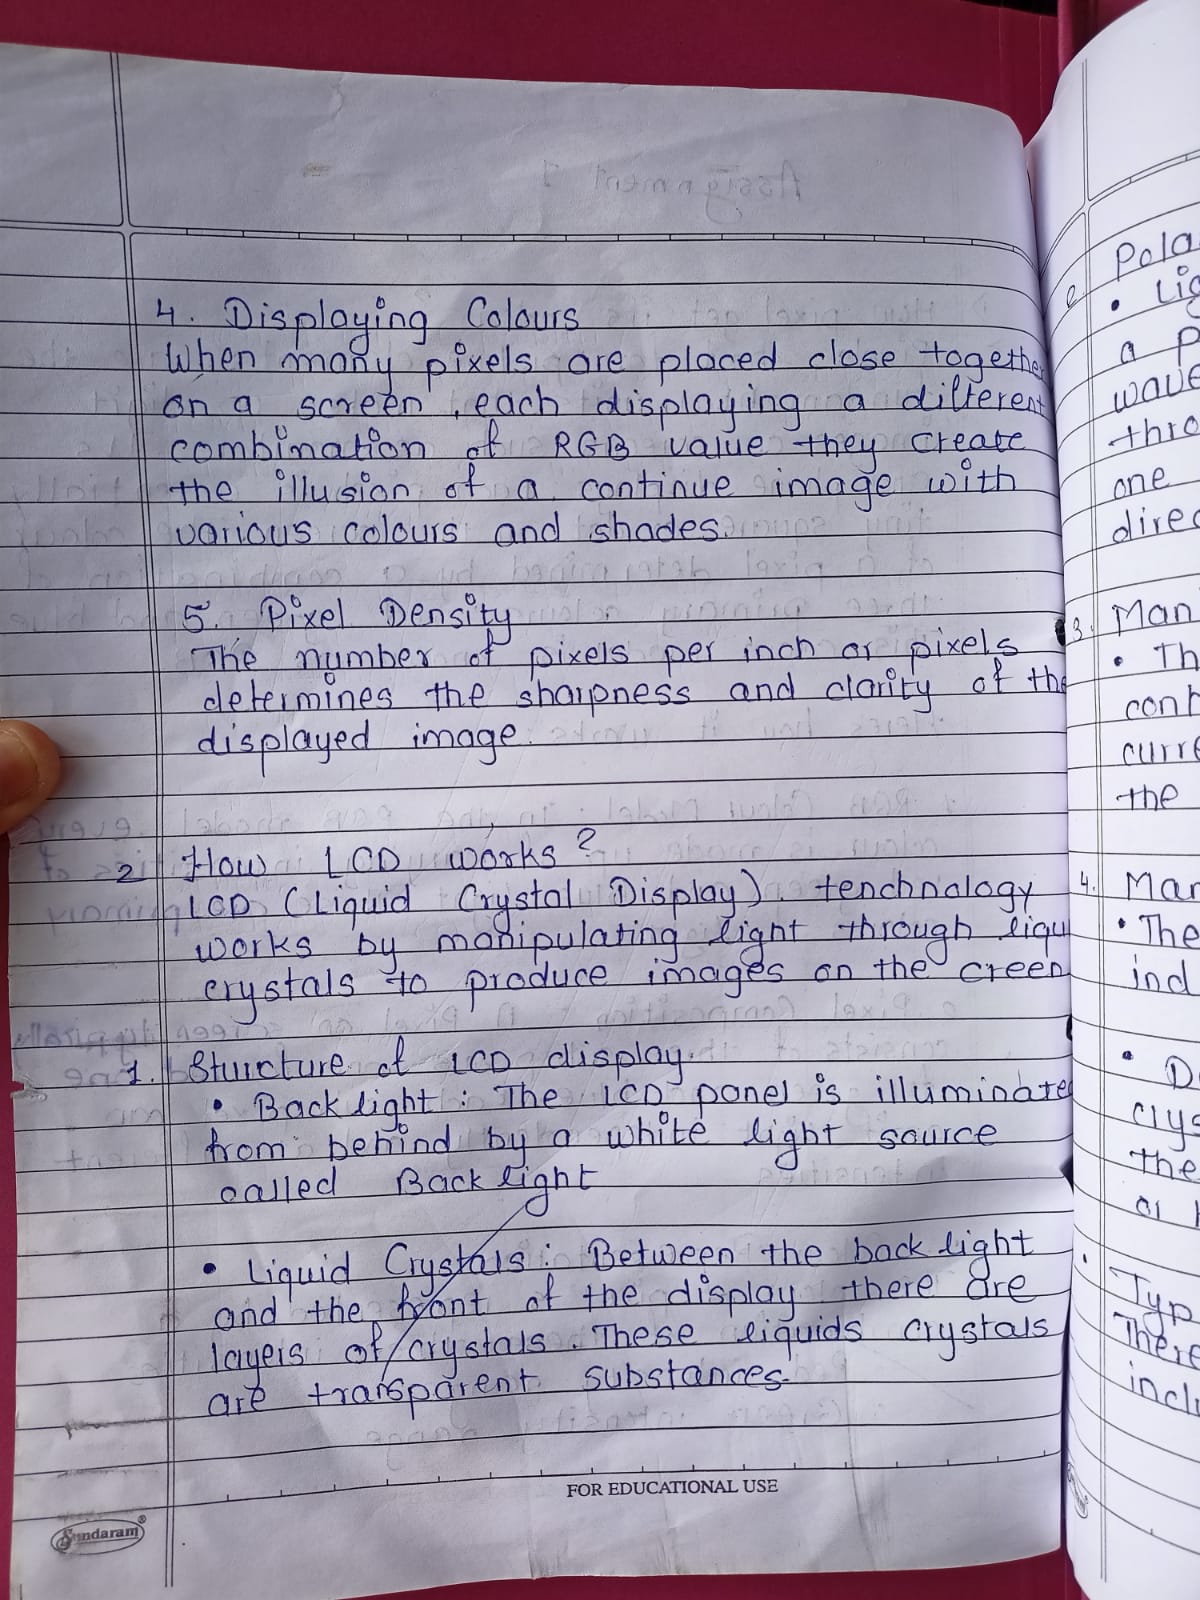 4. Displaying Colours
When many pixels are placed close together
on a screen, each displaying a different
combination of RGB value they create
the illusion of a continue image with
various colours and shades.
5. Pixel Density
The number of pixels per inch or pixels
determines the sharpness and clarity of the
displayed image.
2 How LCD works?
LCD (Liquid Crystal Display). tenchnology
works by manipulating light through liqu
crystals to produce images on the creen
1. Sturcture of LCD display.
• Back light: The LCD panel is illuminated
from behind by a white light source
called Back light
• Liquid Crystals: Between the back light
and the front of the display there are
layers of crystals. These liquids crystals
are transparent substances.
FOR EDUCATIONAL USE
Sundaram
Pola
• Lig
a p
wave
thro
one
direc
3. Man
• Th
cont
curre
the
4. Man
• The
ind
• D
crys
the
or
• Typ
There
inclu